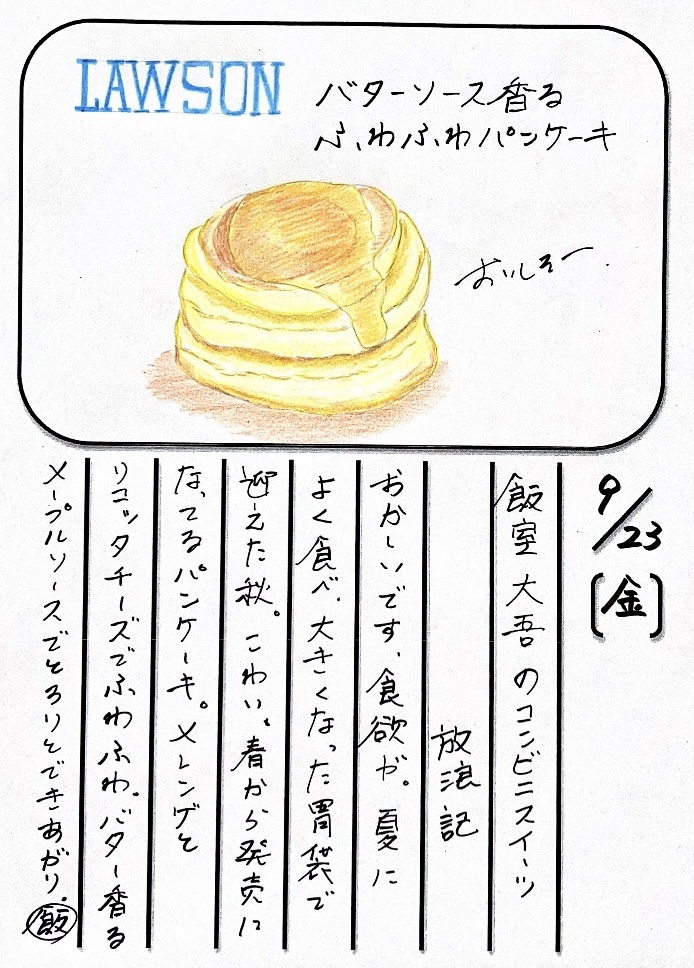 LAWSON
バターソース香る
ふわふわパンケーキ
おいしそー
9/23(金)
飯室大吾のコンビニスイーツ
放浪記
おかしいです、食欲が。夏に
よく食べ、大きくなった胃袋で
迎えた秋。こわい。春から発売に
なってるパンケーキ。メレンゲと
リコッタチーズでふわふわ。バター香る
メープルソースでとろりとできあがり。飯